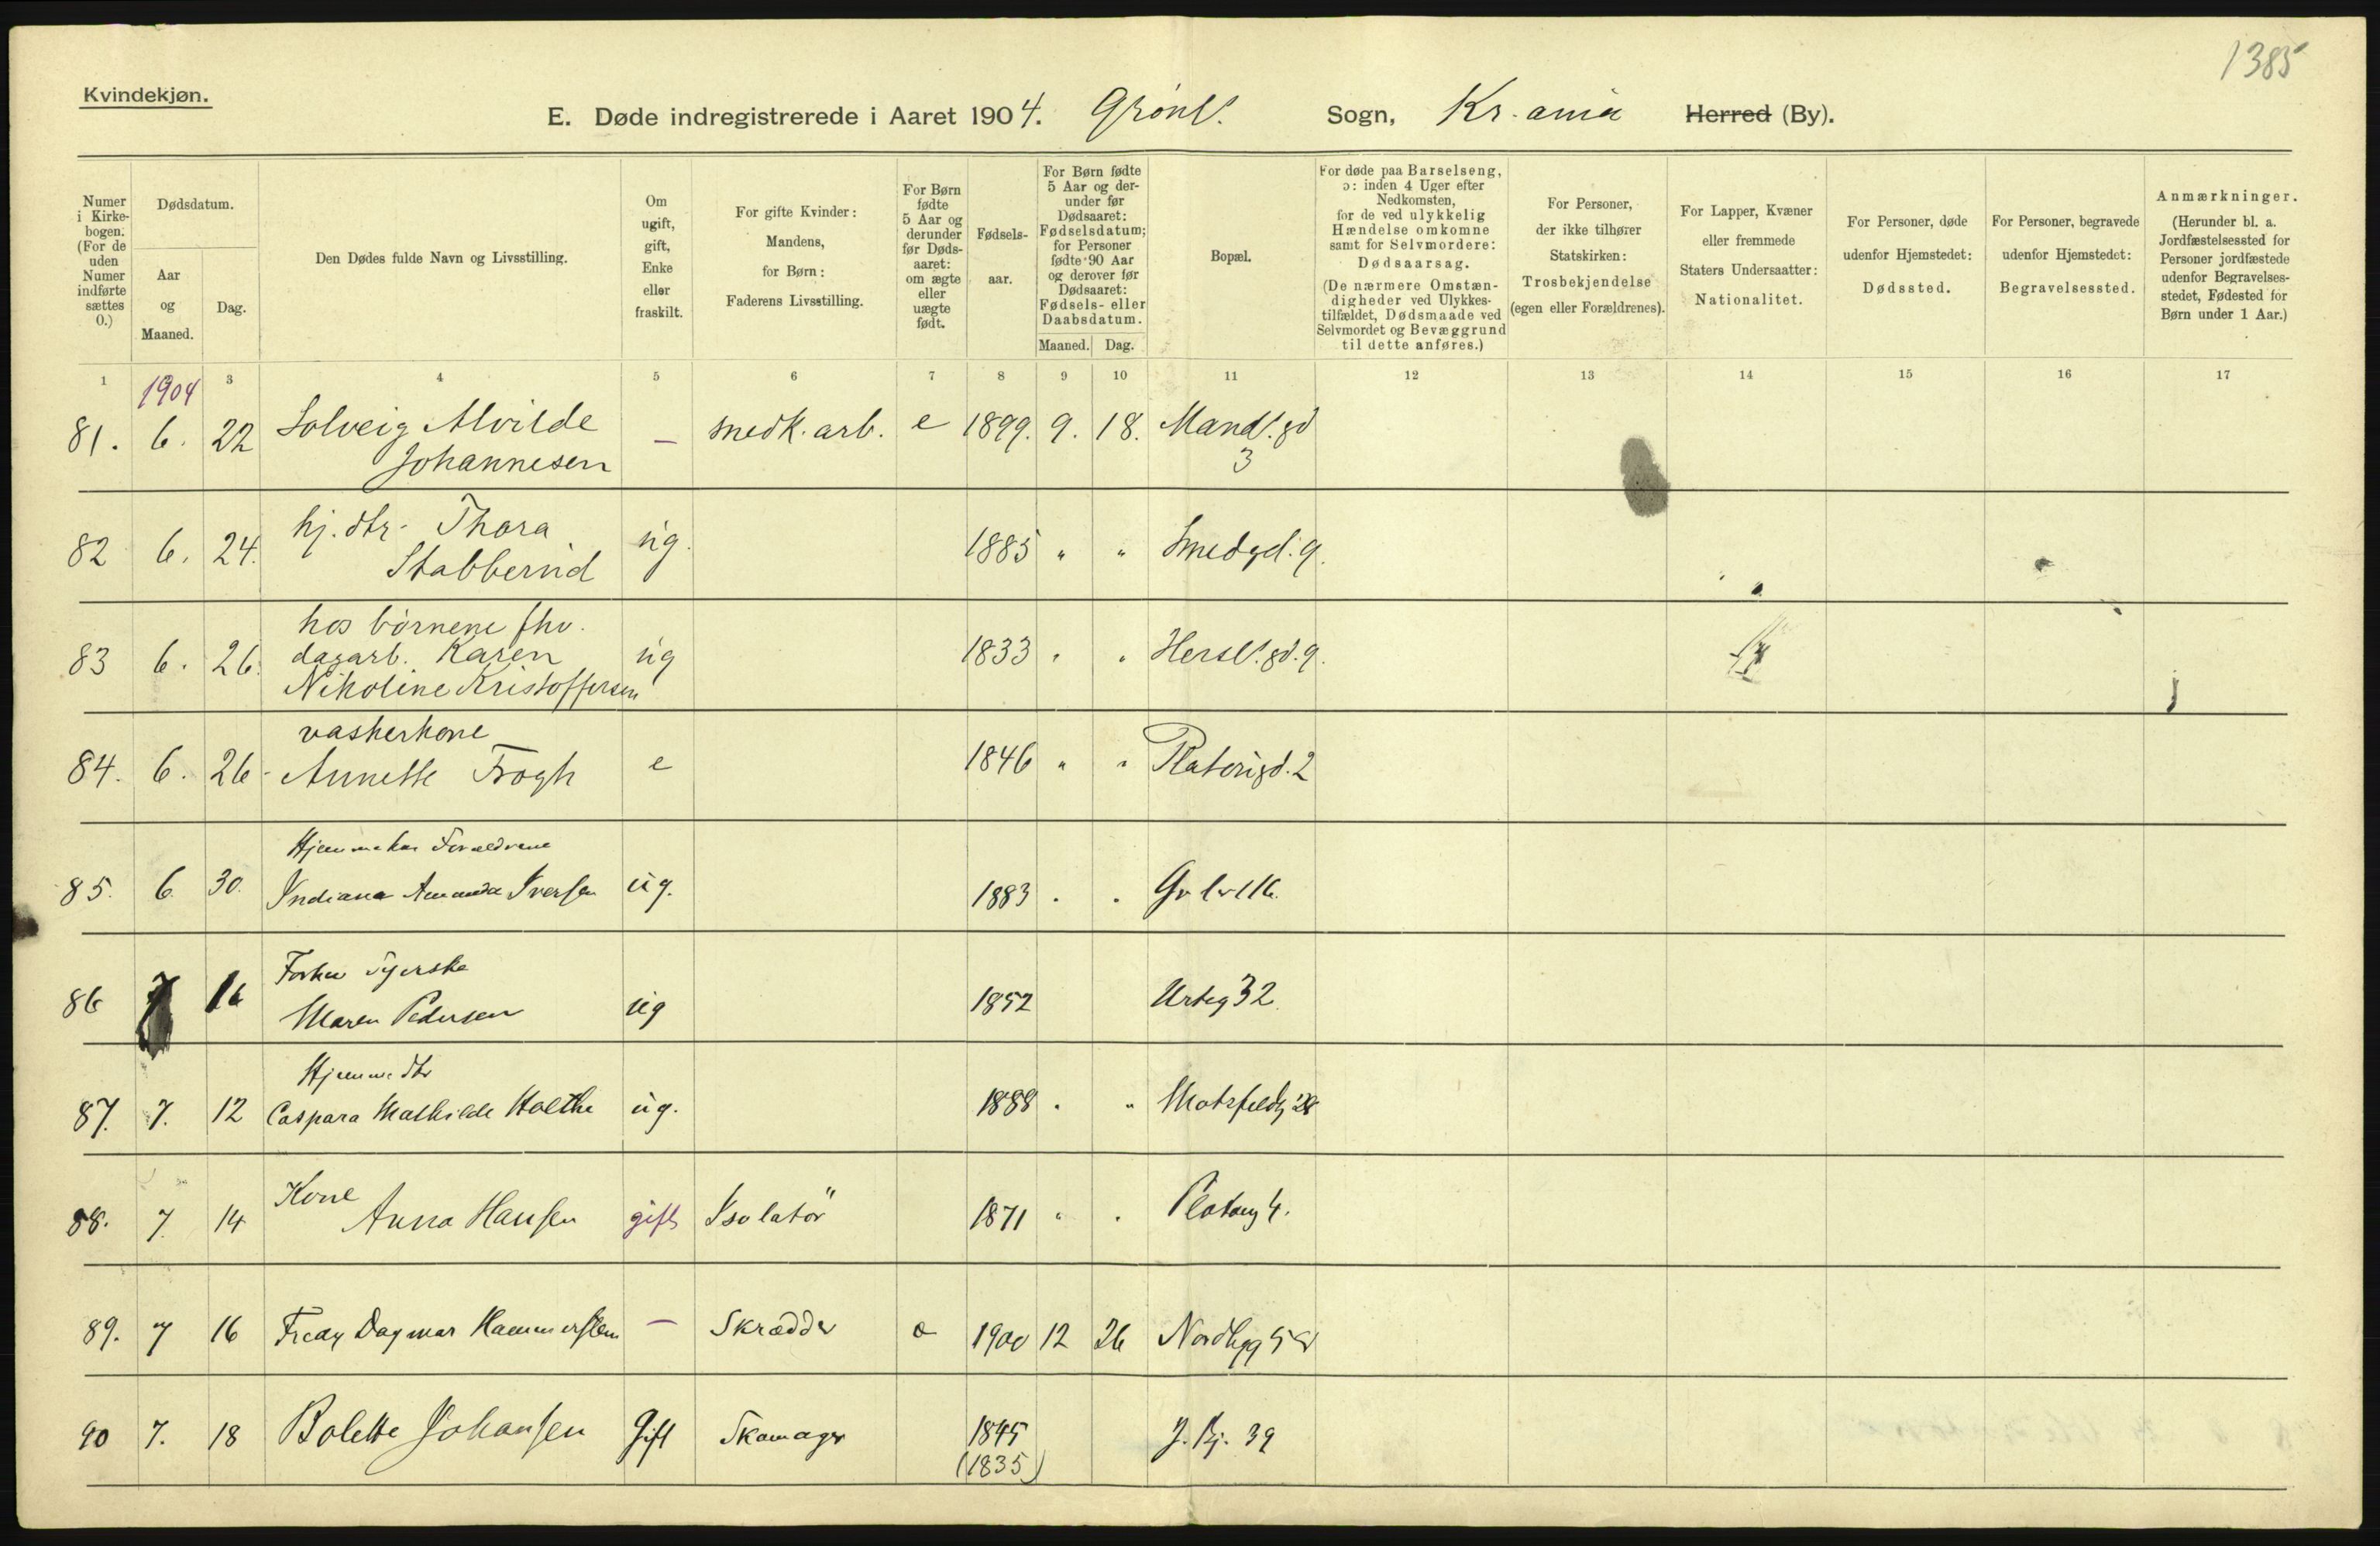 1385
Kvindekjøn.
E. Døde indregistrerede i Aaret 1904. Grønl. Sogn, Kr.ania Herred (By).
Numer i Kirkebogen. (For de uden Numer indførte sættes 0.)
Dødsdatum.
Aar og Maaned.
Dag.
Den Dødes fulde Navn og Livsstilling.
Om ugift, gift, Enke eller fraskilt.
For gifte Kvinder: Mandens, for Børn: Faderens Livsstilling.
For Børn fødte 5 Aar og derunder før Dødsaaret: om ægte eller uægte født.
Fødselsaar.
For Børn fødte 5 Aar og derunder før Dødsaaret: Fødselsdatum; for Personer fødte 90 Aar og derover før Dødsaaret: Fødsels- eller Daabsdatum.
Maaned. Dag.
Bopæl.
For døde paa Barselseng, ɔ: inden 4 Uger efter Nedkomsten, for de ved ulykkelig Hændelse omkomne samt for Selvmordere: Dødsaarsag. (De nærmere Omstændigheder ved Ulykkestilfældet, Dødsmaade ved Selvmordet og Bevæggrund til dette anføres.)
For Personer, der ikke tilhører Statskirken: Trosbekjendelse (egen eller Forældrenes).
For Lapper, Kvæner eller fremmede Staters Undersaatter: Nationalitet.
For Personer, døde udenfor Hjemstedet: Dødssted.
For Personer, begravede udenfor Hjemstedet: Begravelsessted.
Anmærkninger. (Herunder bl. a. Jordfæstelsessted for Personer jordfæstede udenfor Begravelsesstedet, Fødested for Børn under 1 Aar.)
1 3 4 5 6 7 8 9 10 11 12 13 14 15 16 17
1904
81. 6. 22 Solveig Alvilde — snedk. arb. e 1899. 9. 18. Mandl. gd
Johannesen 3
hj. dtr. Thora
82 6. 24. Stabberud ug. 1885 " " Smedgd. 9.
hos børnene fhv.
83 6. 26. dagarb. Karen ug 1833 " " Hersl. gd. 9.
Nikoline Kristoffersen
vaskerkone
84. 6. 26 Annette Trogh e 1846 " " Platousgd. 2
Hjemme hos Forældrene
85. 6. 30. Indiana Amanda Iversen ug. 1883 " "
Syerske
86 7 16 Maren Pedersen ug 1852 Urteg 32.
Hjemme dtr
87. 7. 12 Caspara Mathilde Holthe ug. 1888 " " Motzfeldtg 28
Kone
88. 7. 14 Anna Hansen gift Isolatør 1871 " " Platoug 4.
89. 7 16 Dagmar — Skrædder 1900 12 26 Nordbygg
90 7. 18 Bolette Johansen Gift Skomager 1845 39
(1835)